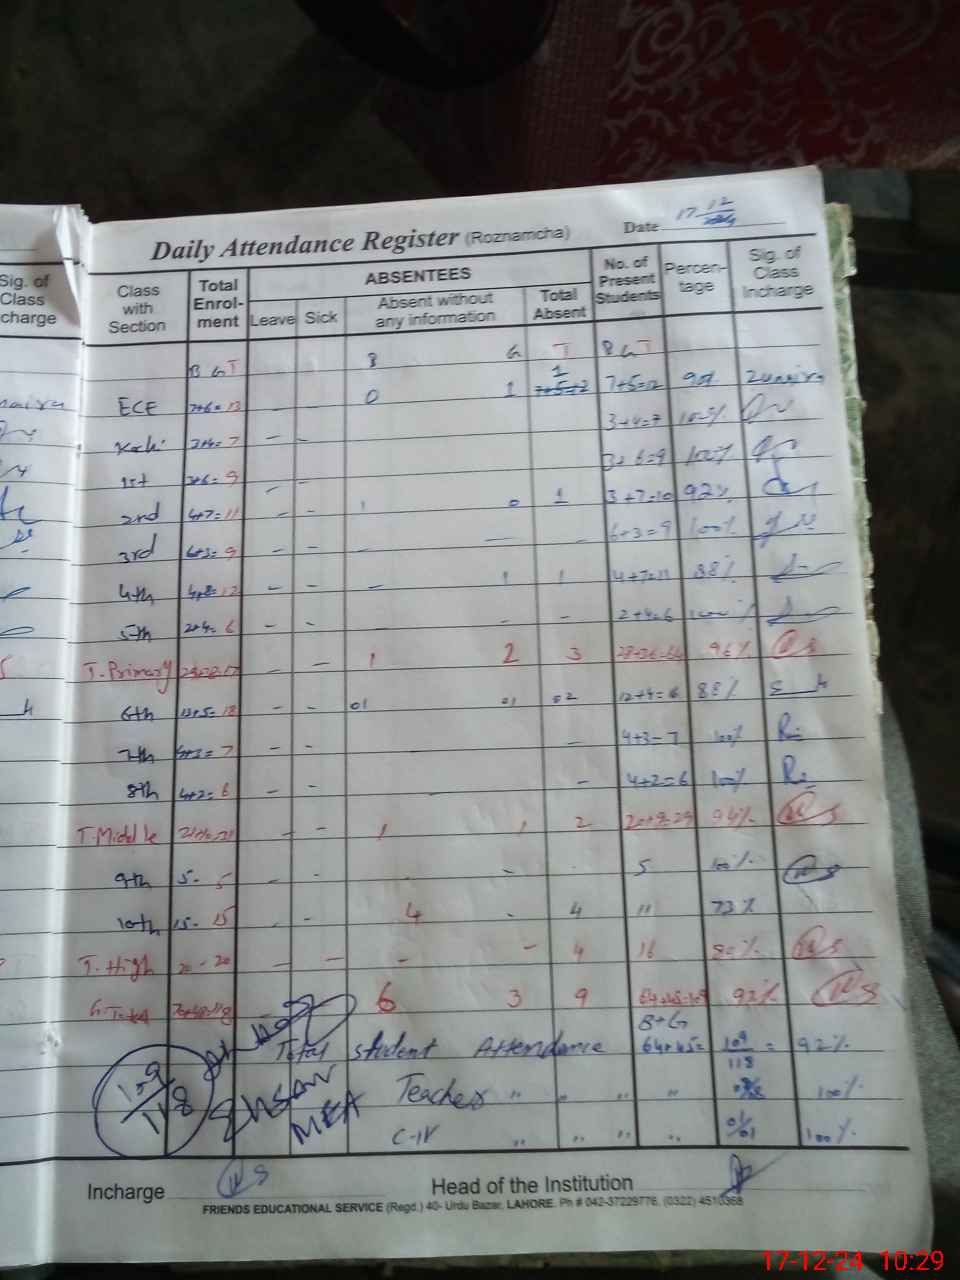 Daily Attendance Register (Roznamcha) Date 17 12
Sig. of Class charge
Class with Section Total Enrol-ment ABSENTEES No. of Present Students Percen-tage Sig. of Class Incharge
Leave Sick Absent without any information Total Absent
B G T B G T B G T
ECE 7+6=13 0 1 1 7+5=12 90% Zunaira
7 3+4=7 100%
1st 3+6=9 3+6=9 100%
2nd 4+7=11 - - 1 0 1 3+7=10 92%
3rd 6+3=9 - - - - - 6+3=9 100%
4th 4+8=12 - - - 1 1 4+7=11 88%
5th 2+4=6 - - - - 2+4=6 100%
T.Primary - - 1 2 3 96%
6th 13+5=18 - - 01 01 02 12+4=6 88%
7th 4+3=7 - - - 4+3=7 100%
8th 4+2=6 - - - - 4+2=6 100%
T.Middle - - 1 1 2 20+9=29 94%
9th 5- 5 - - - 5 100%
10th 15- 15 - - 4 - 4 11 73%
T.High 20-20 - - - - 4 16 80%
G.Total 6 3 9 64+45=109 92%
B+G
Total Student Attendance 64+45= 109/118 = 92%
109/118
Ehsan
MEA
Teacher " " " " 100%
C-IV " " " " 01/01 100%
Incharge Head of the Institution
FRIENDS EDUCATIONAL SERVICE (Regd.) 40- Urdu Bazar, LAHORE. Ph # 042-37229776, (0322) 4510368
17-12-24 10:29